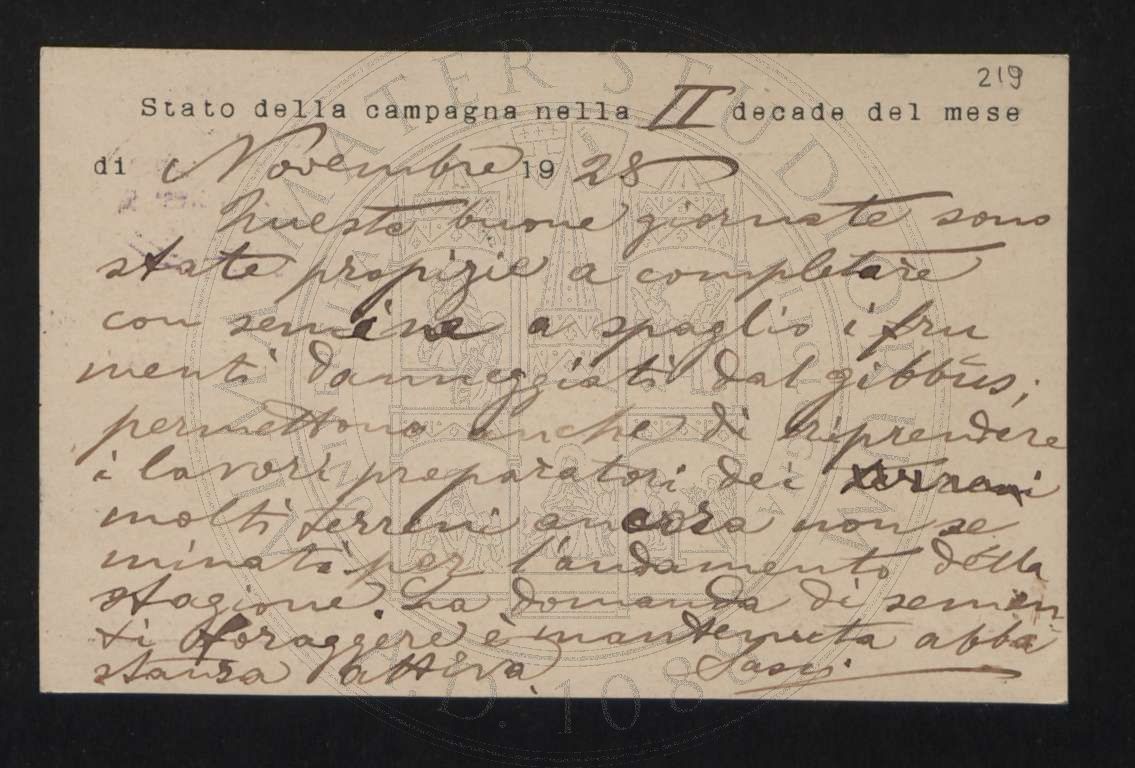 219
Stato della campagna nella II decade del mese
di Novembre 1928
Queste buone giornate sono
state propizie a completare
con semine a spaglio i fru
menti danneggiati dal gibbus;
permettono anche di riprendere
i lavori preparatori dei terreni
molti terreni ancora non se
minati per l'andamento della
stagione. La domanda di semen
ti foraggere è mantenuta abba
stanza attiva.
ALMA MATER STUDIORUM
A.D. 1088